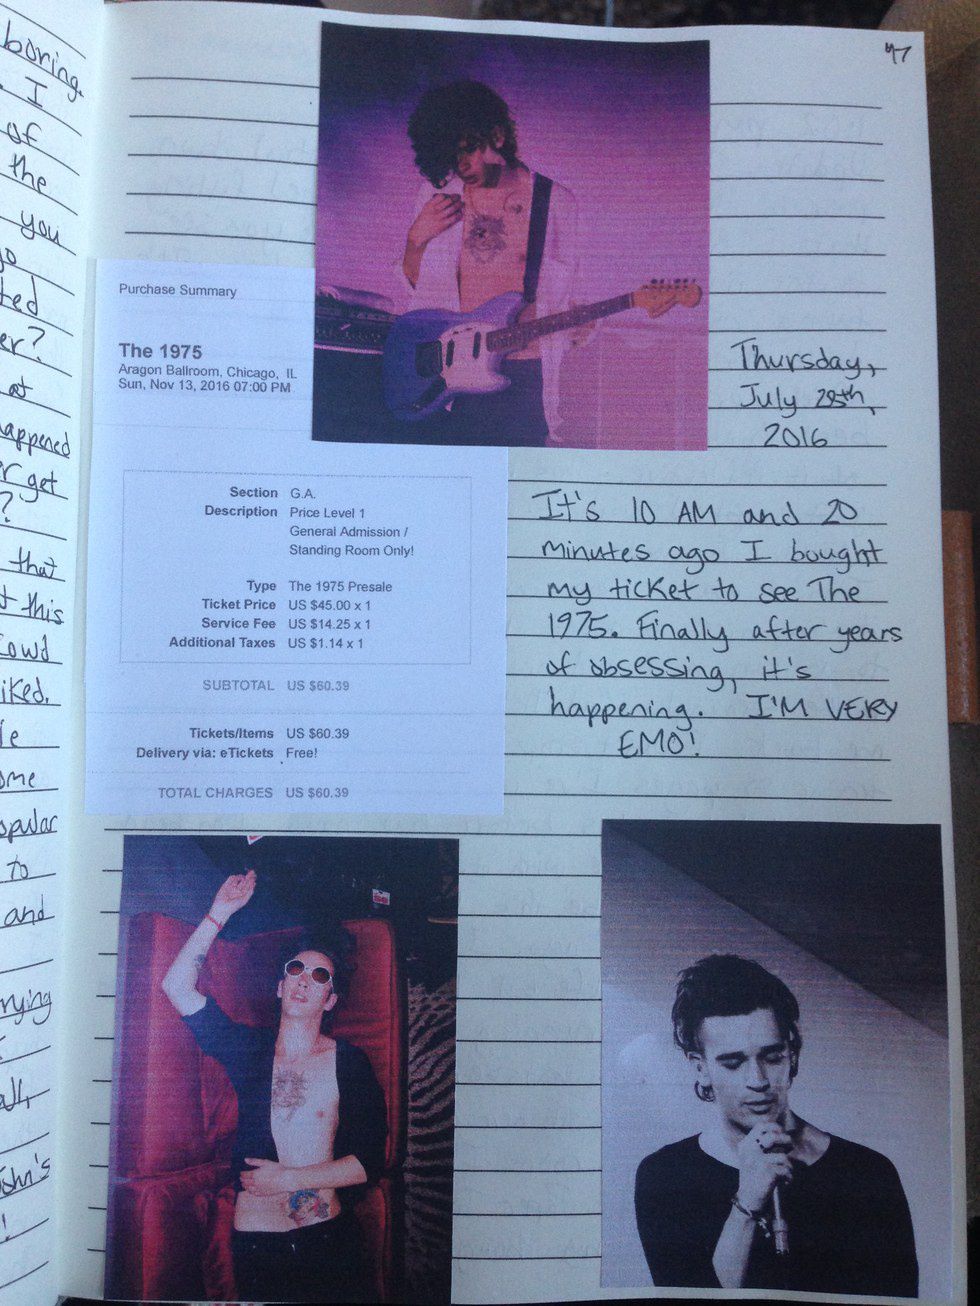 boring.
I
of
the
you
47
Purchase Summary
The 1975
Aragon Ballroom, Chicago, IL
Sun, Nov 13, 2016 07:00 PM
Section G.A.
Description Price Level 1
General Admission /
Standing Room Only!
Type The 1975 Presale
Ticket Price US $45.00 x 1
Service Fee US $14.25 x 1
Additional Taxes US $1.14 x 1
SUBTOTAL US $60.39
Tickets/Items US $60.39
Delivery via: eTickets Free!
TOTAL CHARGES US $60.39
Thursday,
July 28th,
2016
It's 10 AM and 20
minutes ago I bought
my ticket to see The
1975. Finally after years
of obsessing, it's
happening. I'M VERY
EMO!
at
get
?
that
this
to
and